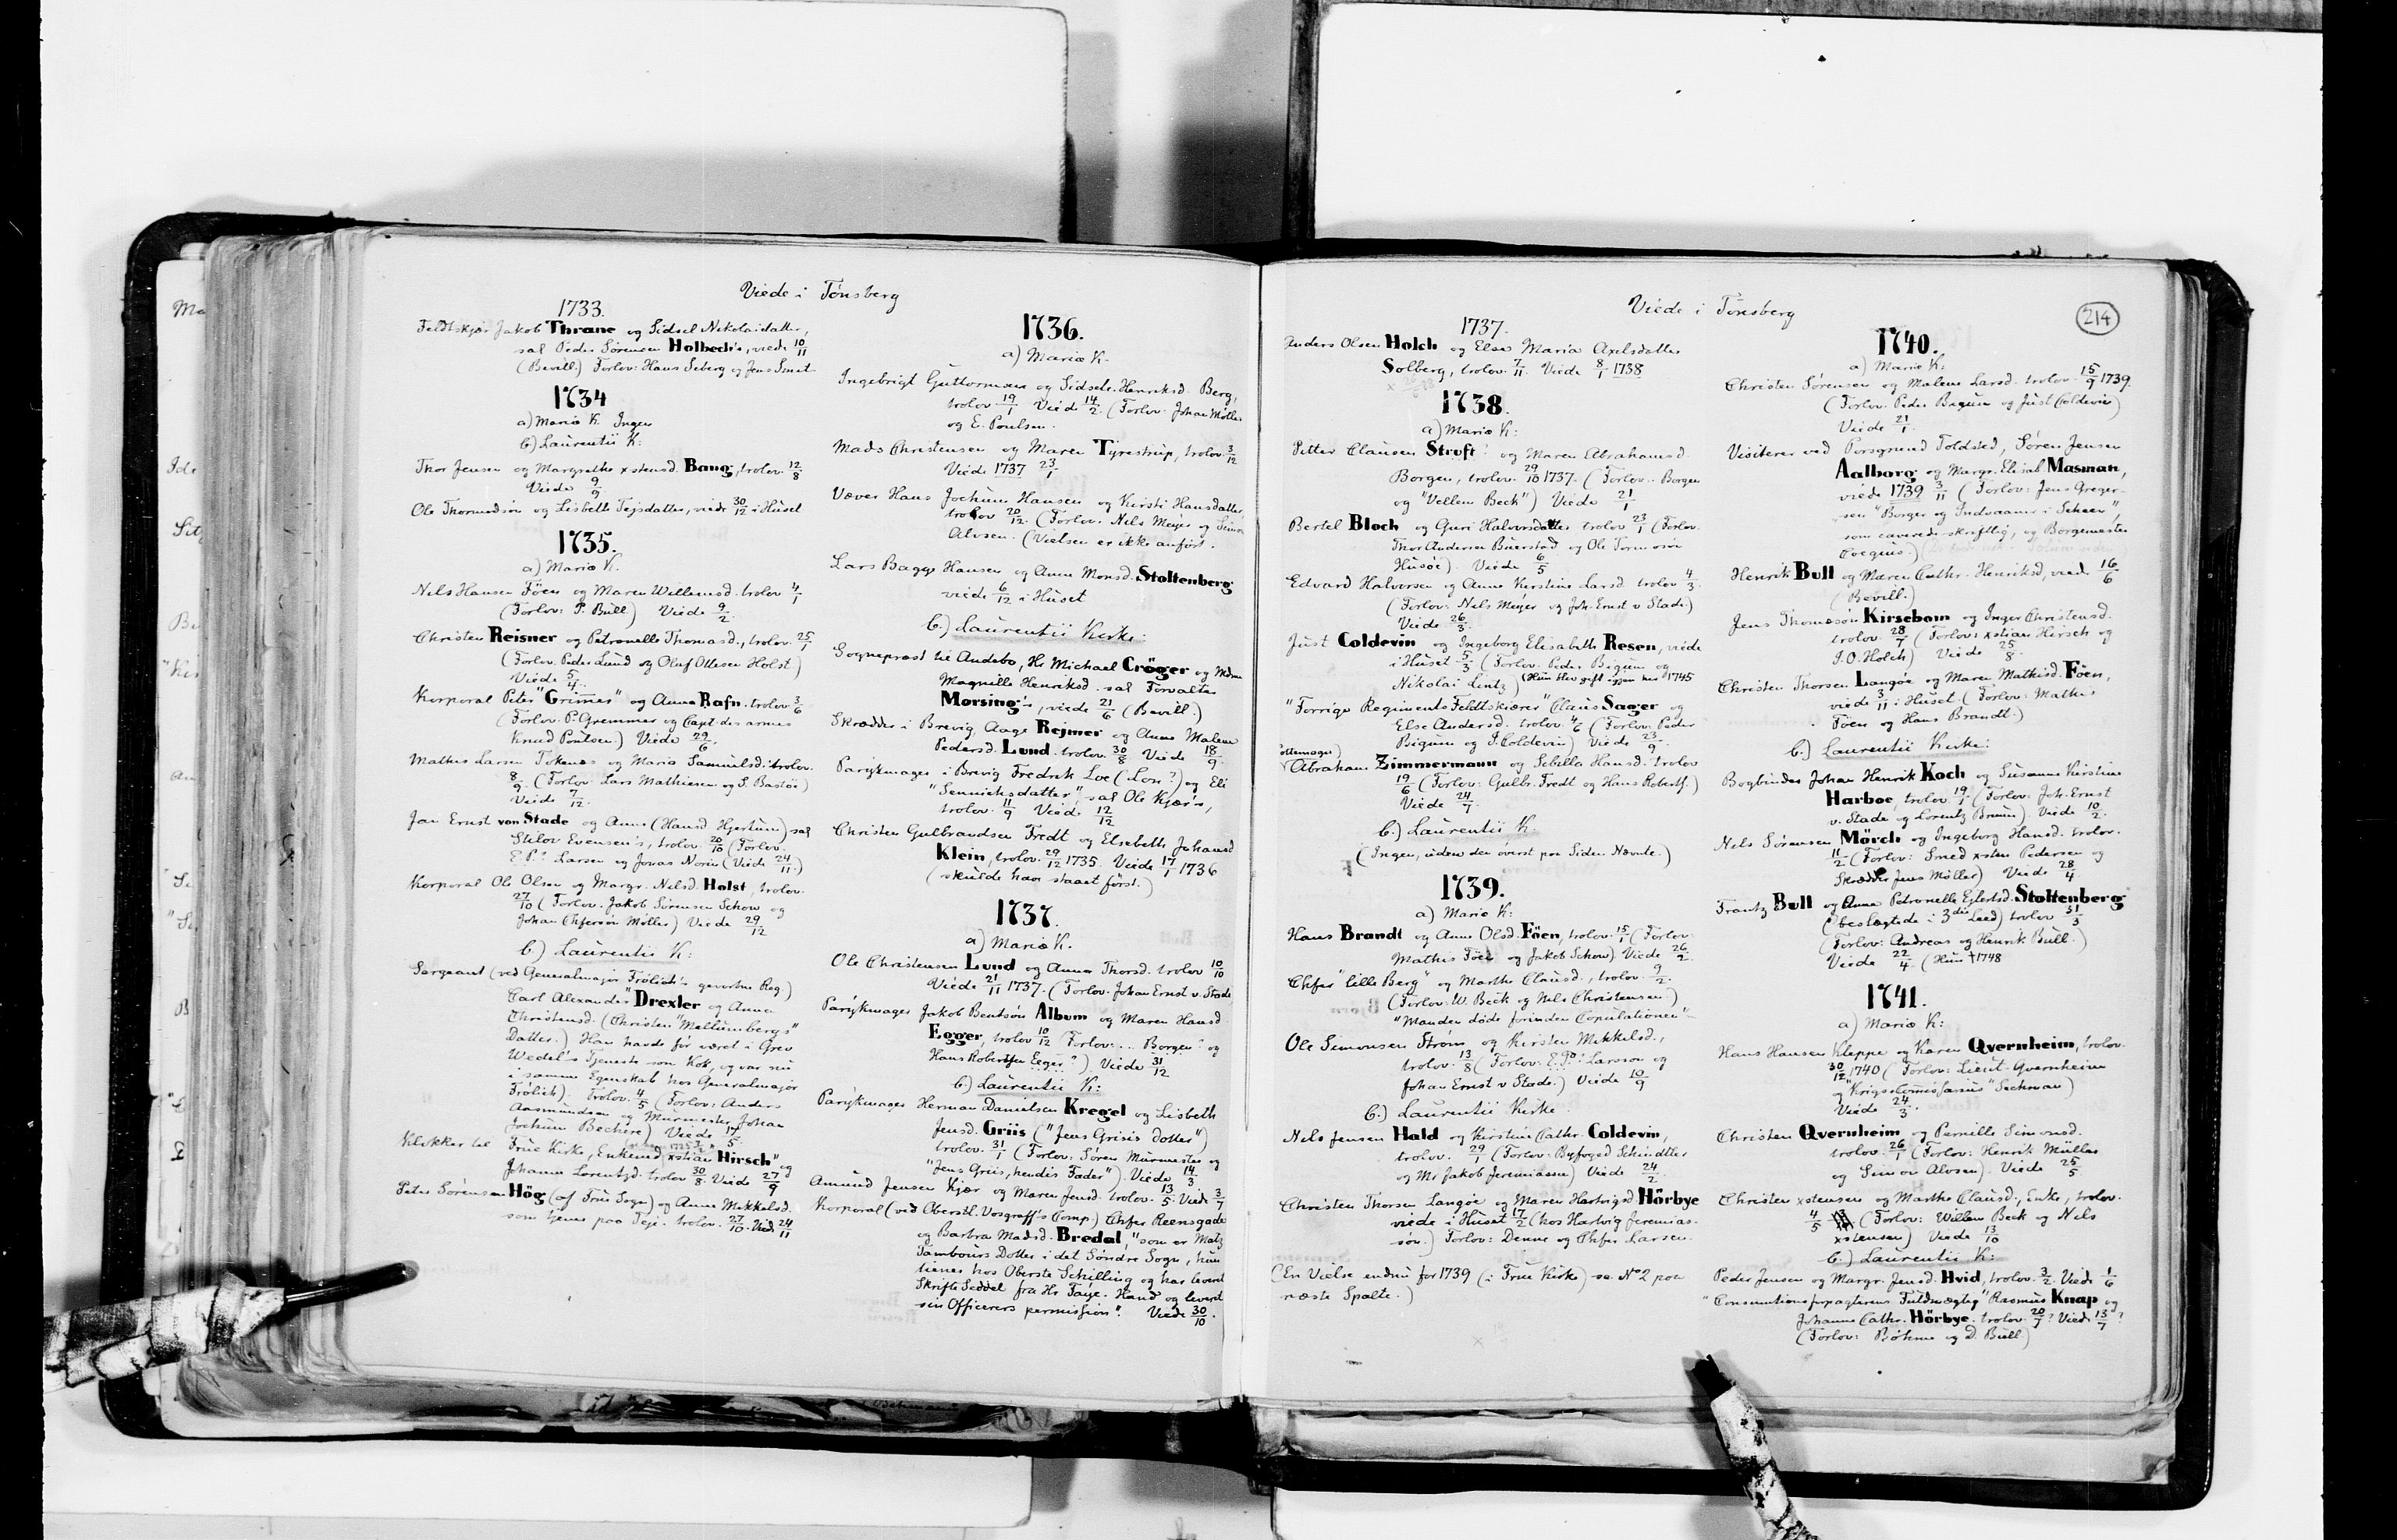 Viede i Tönsberg
1733.
Feldtskjær Jakob Thrane og Sidsel Nikolaidatter,
sal Peder Sørensen Holbech's, viede 10/11
(Bevill.) Forlov: Hans Seberg og Jens Smit
1734
a) Mariæ K. Ingen
b) Laurentii K:
Thor Jensen og Margrethe xstensd. Bang, trolov. 12/8
Viede 9/9
Ole Thormodsön og Lisbeth Tejsdatter, viede 30/12 i Huset
1735.
a) Mariæ K.
Nils Hansen Föen og Maren Willumsd. trolov 4/1
(Forlov: P. Bull) Viede 9/2.
Christen Reisner og Petronelle Thomasd., trolov. 25/1
(Forlov. Peder Lund og Oluf Ottesen Holst.)
Viede 5/4.
Korporal Peter "Grimes" og Anna Rafn. trolov. 3/6
(Forlov. P. Gremmer og Capt. des armes
Knud Poulsen.) Viede 29/6.
Mathis Larsen Tokenæs og Maria Samuelsd. trolov.
8/9. (Forlov: Lars Mathiesen og S. Bastöe)
Viede 7/12.
Jan Ernst von Stade og Anne (Hansd Hjertum) sal
Stilov Evensen's, trolov. 20/10 (Forlov.
E. P.? Larsen og Jonas Noriu (Viede 24/11.)
Korporal Ole Olsen og Margr. Nilsd. Holst, trolov.
27/10 (Forlov. Jakob Sørensen Schow og
Johan Chfersön Møller) Viede 29/12
b.) Laurentii K:
Sergeant (ved Generalmajor Frölich's gevorbne Reg.)
Carl Alexander Drexler og Anna
Christensd. (Christen "Mellumbergs"
Datter.) Han havde för været i Grev
Wedel's Tjeneste som Kok, og var nu
i samme Egenskab hos Generalmajor
Frölich). Trolov. 4/5 (Forlov: Anders
Aasmundsen og Murmester Johan
Jochum Bechere) Viede 17/5.
Klokker til Frue Kirke, Enkemd xstian Hirsch" og
Johanne Lorentzd. trolov 30/8. Viede 27/9
Peter Sørensen Hög (af Frue Sogn) og Anne Mikkelsd.
som tjener paa Teje. trolov. 27/10. Vied 24/11
1736.
a) Mariæ K.
Ingebrigt Guttormsen og Sidsele Henriksd. Berg,
trolov 19/1 Vied 14/2. (Forlov. Johan Møller
og E. Poulsen.
Mads Christensen og Maren Tyrestrup, trolov 3/12
Viede 1737 23/1
Væver Hans Jochum Hansen og Kirsti Hansdatter,
trolov 20/12. (Forlov. Nils Meyer og Simon
Alvsen. (Vielsen er ikke anført.
Lars Bagge Hansen og Anne Monsd. Stoltenberg
viede 6/12 i Huset
b.) Laurentii Kirke:
Sognepræst til Andebo, Hr Michael Cröger og Mdm
Magnille Henriksd. sal Forvalter
Morsing's, viede 21/6 (Bevill.)
Skrædder i Brevig, Aage Rejmer og Anne Malene
Pedersd. Lund. trolov. 30/8 Viede 18/9.
Parykmager i Brevig Fredrik Loe (Lou?) og Eli
"Sennichsdatter", sal Ole Kjær's,
trolov. 11/9 Viede 12/12
Christen Gulbrandsen Fredt og Elsebeth Johansd
Klein, trolov. 29/12 1735. Viede 17/1 1736
(skulde have staaet först.)
1737.
a) Mariæ K.
Ole Christensen Lund og Anna Thorsd. trolov 10/10
Viede 21/11 1737. (Forlov. Johan Ernst v. Stade
Parykmager Jakob Bentsön Album og Maren Hansd
Egger, trolov 10/12 (Forlov: .. Borgen? og
Hans Robertsen Egger?) Viede 31/12
b) Laurentii K:
Parykmager Herman Danielsen Kregel og Lisbeth
Jensd. Griis ("Jens Grisis Dotter")
trolov. 31/1 (Forlov: Søren Murmester og
"Jens Griis, hendis Fader") Viede 14/3
Amund Jensen Kjær og Maren Jensd. trolov. 13/5 Vied 3/7
Korporal (ved Oberstl. Vosgraff's Comp.) Chfer Reensgade
og Barbra Madsd. Bredal, "som er Matz
Tambours Dotter i det Söndre Sogn, hun
tiener hos Oberste Schilling og har leveret
Skrifte Seddel fra Hr Faye. Hand og leveret
sin Officerers permission". Viede 30/10.
Viede i Tönsberg
214
1737.
Anders Olsen Holch og Else Maria Axelsdatter
Solberg, trolov. 7/11. Viede 8/1 1738
1738.
a) Mariæ K:
Petter Clausen Struft? og Maren Abrahamsd
Borgen, trolov. 29/10 1737. (Forlov.. Borgen
og "Vellem Beck") Viede 21/1
Bertel Bloch og Guri Halvorsdatter trolov 23/1 (Forlov.
Thor Andersen Buerstad og Ole Tormosön
Husöe). Viede 6/5
Edvard Halvorsen og Anne Kirstine Larsd trolov 4/3.
(Forlov: Nils Meyer og Joh. Ernst v Stade)
Viede 26/3.
Just Coldevin og Ingeborg Elisabeth Resen, viede
i Huset 5/3 (Forlov. Peder Bigum og
Nikolai Lintz) (Hun blev gift igjen med 1745
"Forrige Regiments Feldtskiærer" Claus Sager og
Else Andersd. trolov. 4/6 (Forlov. Peder
Bigum og J. Coldevin) Viede 23/9.
Abraham Zimmermann og Sebilla Hansd. trolov
19/6 (Forlov: Gulbr. Fredt og Hans Robertss.)
Viede 24/7.
b.) Laurentii K.
(Ingen, uden den överst paa Siden Nævnte.)
1739.
a) Mariæ K:
Hans Brandt og Anne Olsd. Föen, trolov. 15/1 (Forlov:
Mathis Föen og Jakob Schow) Viede 26/2.
Chfer "lille Berg" og Marthe Clausd., trolov. 9/2.
(Forlov: W. Beck og Nils Christensen.)
"Manden döde forinden Copulationen"
Ole Simonsen Ström og Kirsten Mikkelsd.,
trolov. 13/8 (Forlov: E. P.? Larsson og
Johan Ernst v Stade.) Viede 10/9
b.) Laurentii Kirke
Nils Jensen Hald og Kirstine Cathr. Coldevin,
trolov. 29/1 (Forlov: Byfoged Schindtler
og Mr Jakob Jeremiassen) Viede 24/2.
Christen Thorsen Langöe og Maren Hartvigsd. Hörbye
viede i Huset 17/2 (hos Hartvig Jeremias-
sön.) Forlov: Denne og Chfer Larsen.
(En Vielse endnu for 1739 (i Frue Kirke) se No 2 paa
næste Spalte.)
1740.
a) Mariæ K:
Christen Sørensen og Malene Larsd. trolov. 15/9 1739.
(Forlov. Peder Bigum og Just Coldevin)
Viede 21/1.
Visiterer ved Porsgrund Toldsted, Sören Jensen
Aalborg og Margr. Eli sal Masman,
viede 1739 3/11 (Forlov: Jens Greger-
sen "Borger og Indvaaner i Scheen",
som caverede skriftlig, og Borgemester
Coegius.)
Henrik Bull og Maren Cathr. Henriksd, viede 16/6
(Bevill.)
Jens Thomæsön Kirsebom og Inger Christensd.
trolov. 28/7 (Forlov: xstian Hirsch og
J. O. Holch) Viede 25/8.
Christen Thorsen Langöe og Maren Mathisd. Föen,
viede 3/11 i Huset. (Forlov: Mathis
Föen og Hans Brandt.)
b.) Laurentii Kirke:
Bogbinder Johan Henrik Koch og Susanne Kirstine
Harboe, trolov. 19/1 (Forlov: Joh. Ernst
v. Stade og Lorentz Bruun). Viede 10/2.
Nils Sørensen Mörch og Ingeborg Hansd. trolov.
11/2 (Forlov: Smed xsten Pedersen og
Skrædder Jens Møller) Viede 28/4.
Frantz Bull og Anna Petronelle Ejlertsd. Stoltenberg
(beslægtede i 3die Leed) trolov 31/3
(Forlov: Andreas og Henrik Bull.)
Viede 22/4. (Hun †1748
1741.
a) Mariæ K:
Hans Hansen Kleppe og Karen Qvernheim, trolov.
30/12 1740 (Forlov: Lieut. Qvernheim
og "Krigscomissarius" Seckman)
Viede 24/3.
Christen Qvernheim og Pernille Simonsd.
trolov. 26/1 (Forlov: Henrik Müller
og Simon Alvsen). Viede 25/5
Christen xstensen og Marthe Clausd., Enke, trolov.
4/5 (Forlov: Willem Beck og Nels
xstensen) Viede 13/10
b.) Laurentii K:
Peder Jensen og Margr. Jensd. Hvid, trolov. 3/2. Viede 1/6
"Consumtionsforpagterens Fuldmægtig" Rasmus Knap og
Johanne Cathr. Hörbye. trolov. 20/7? Viede 13/7?
(Forlov: Böhme og D. Bull)